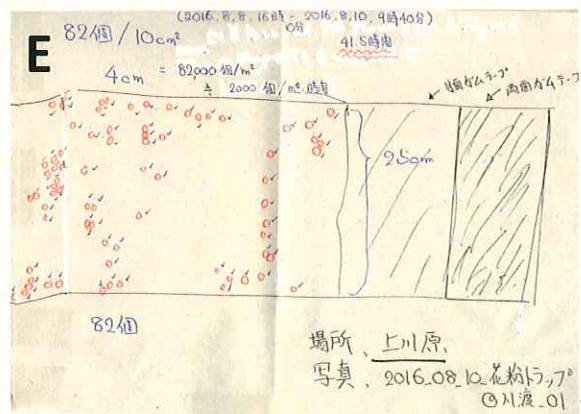 E
82個/10cm²
(2016.8.8.16時0分-2016.8.10.9時40分)
41.5時間
4cm = 82,000個/m²
≒ 2000個/m²・時間
片面ガムテープ
両面ガムテープ
2.5cm
82個
場所、上川原、
写真、2016.08.10_花粉トラップ
@川渡_01